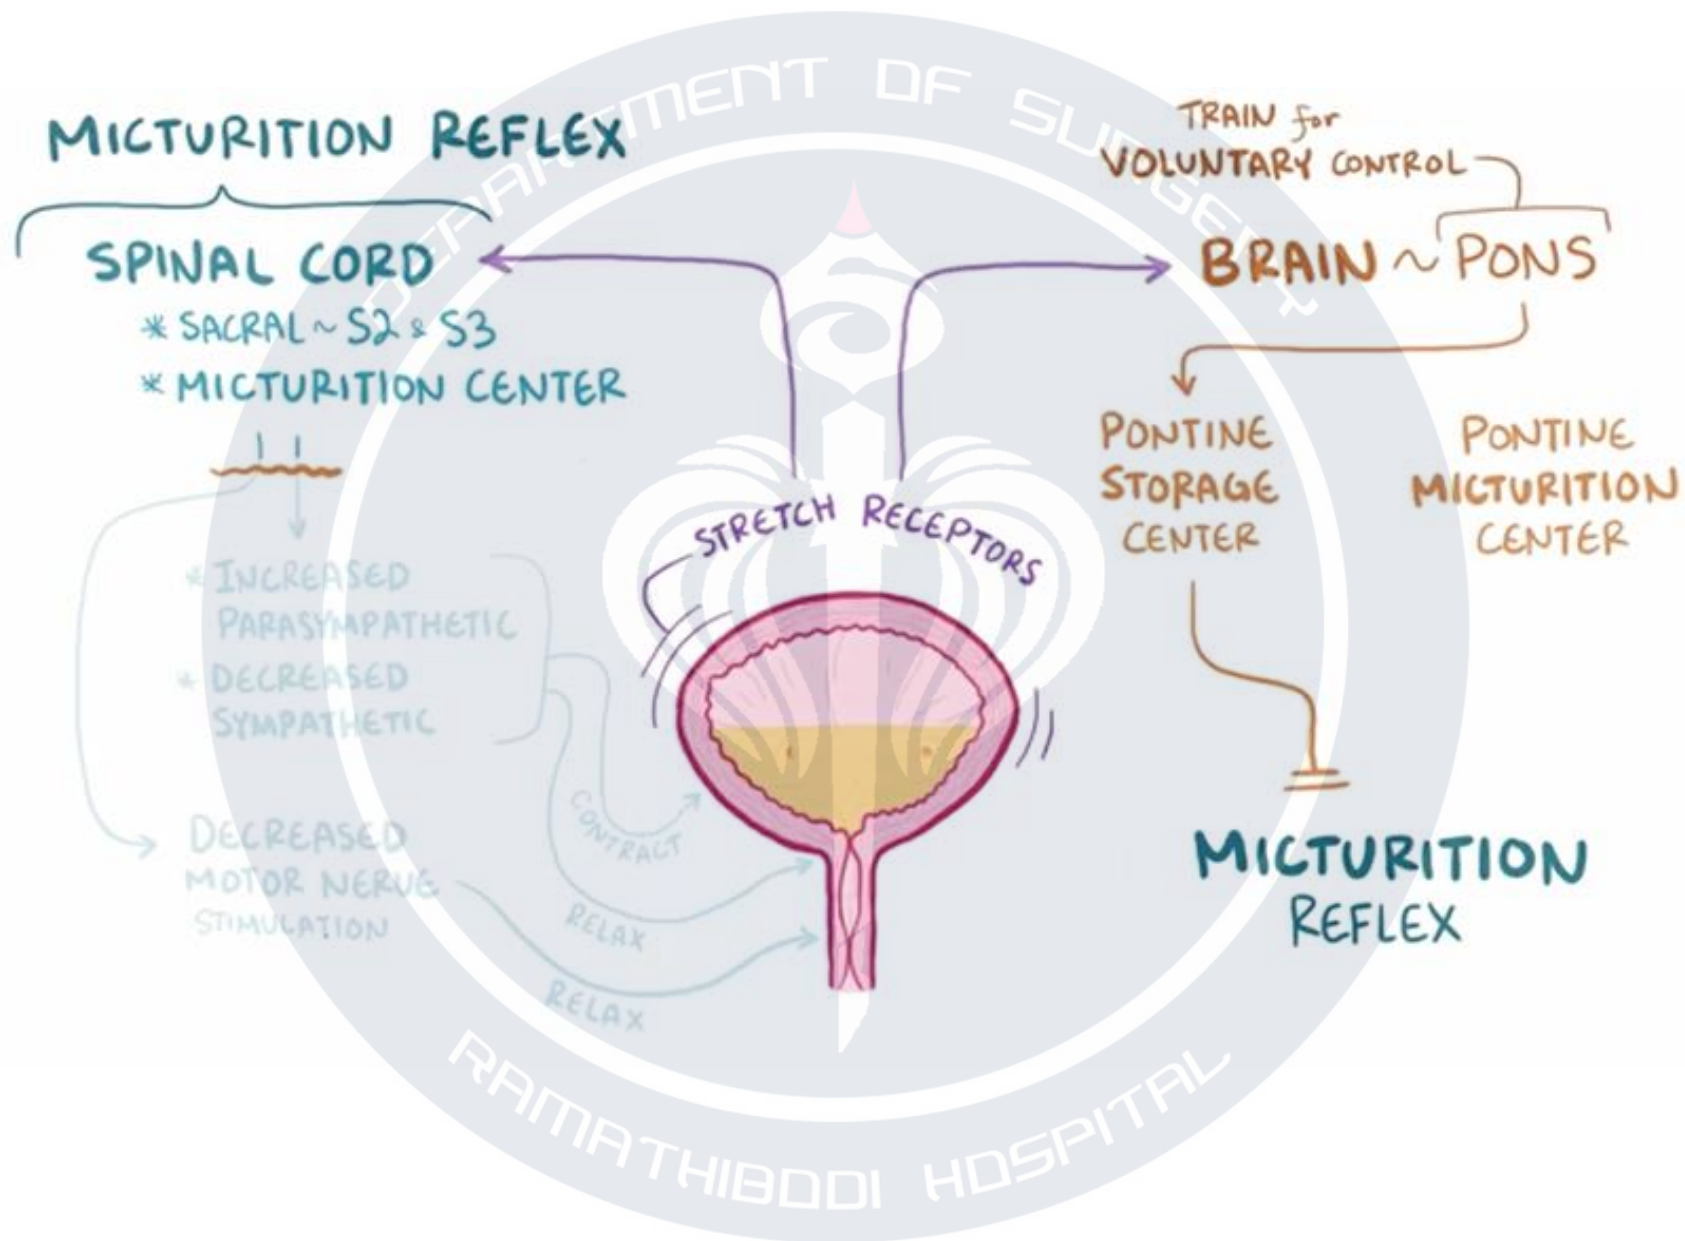 DEPARTMENT OF SURGERY
MICTURITION REFLEX
SPINAL CORD
* SACRAL ~ S2 & S3
* MICTURITION CENTER
* INCREASED
PARASYMPATHETIC
* DECREASED
SYMPATHETIC
DECREASED
MOTOR NERVE
STIMULATION
CONTRACT
RELAX
RELAX
STRETCH RECEPTORS
TRAIN for
VOLUNTARY CONTROL
BRAIN ~ PONS
PONTINE
STORAGE
CENTER
PONTINE
MICTURITION
CENTER
MICTURITION
REFLEX
RAMATHIBODI HOSPITAL